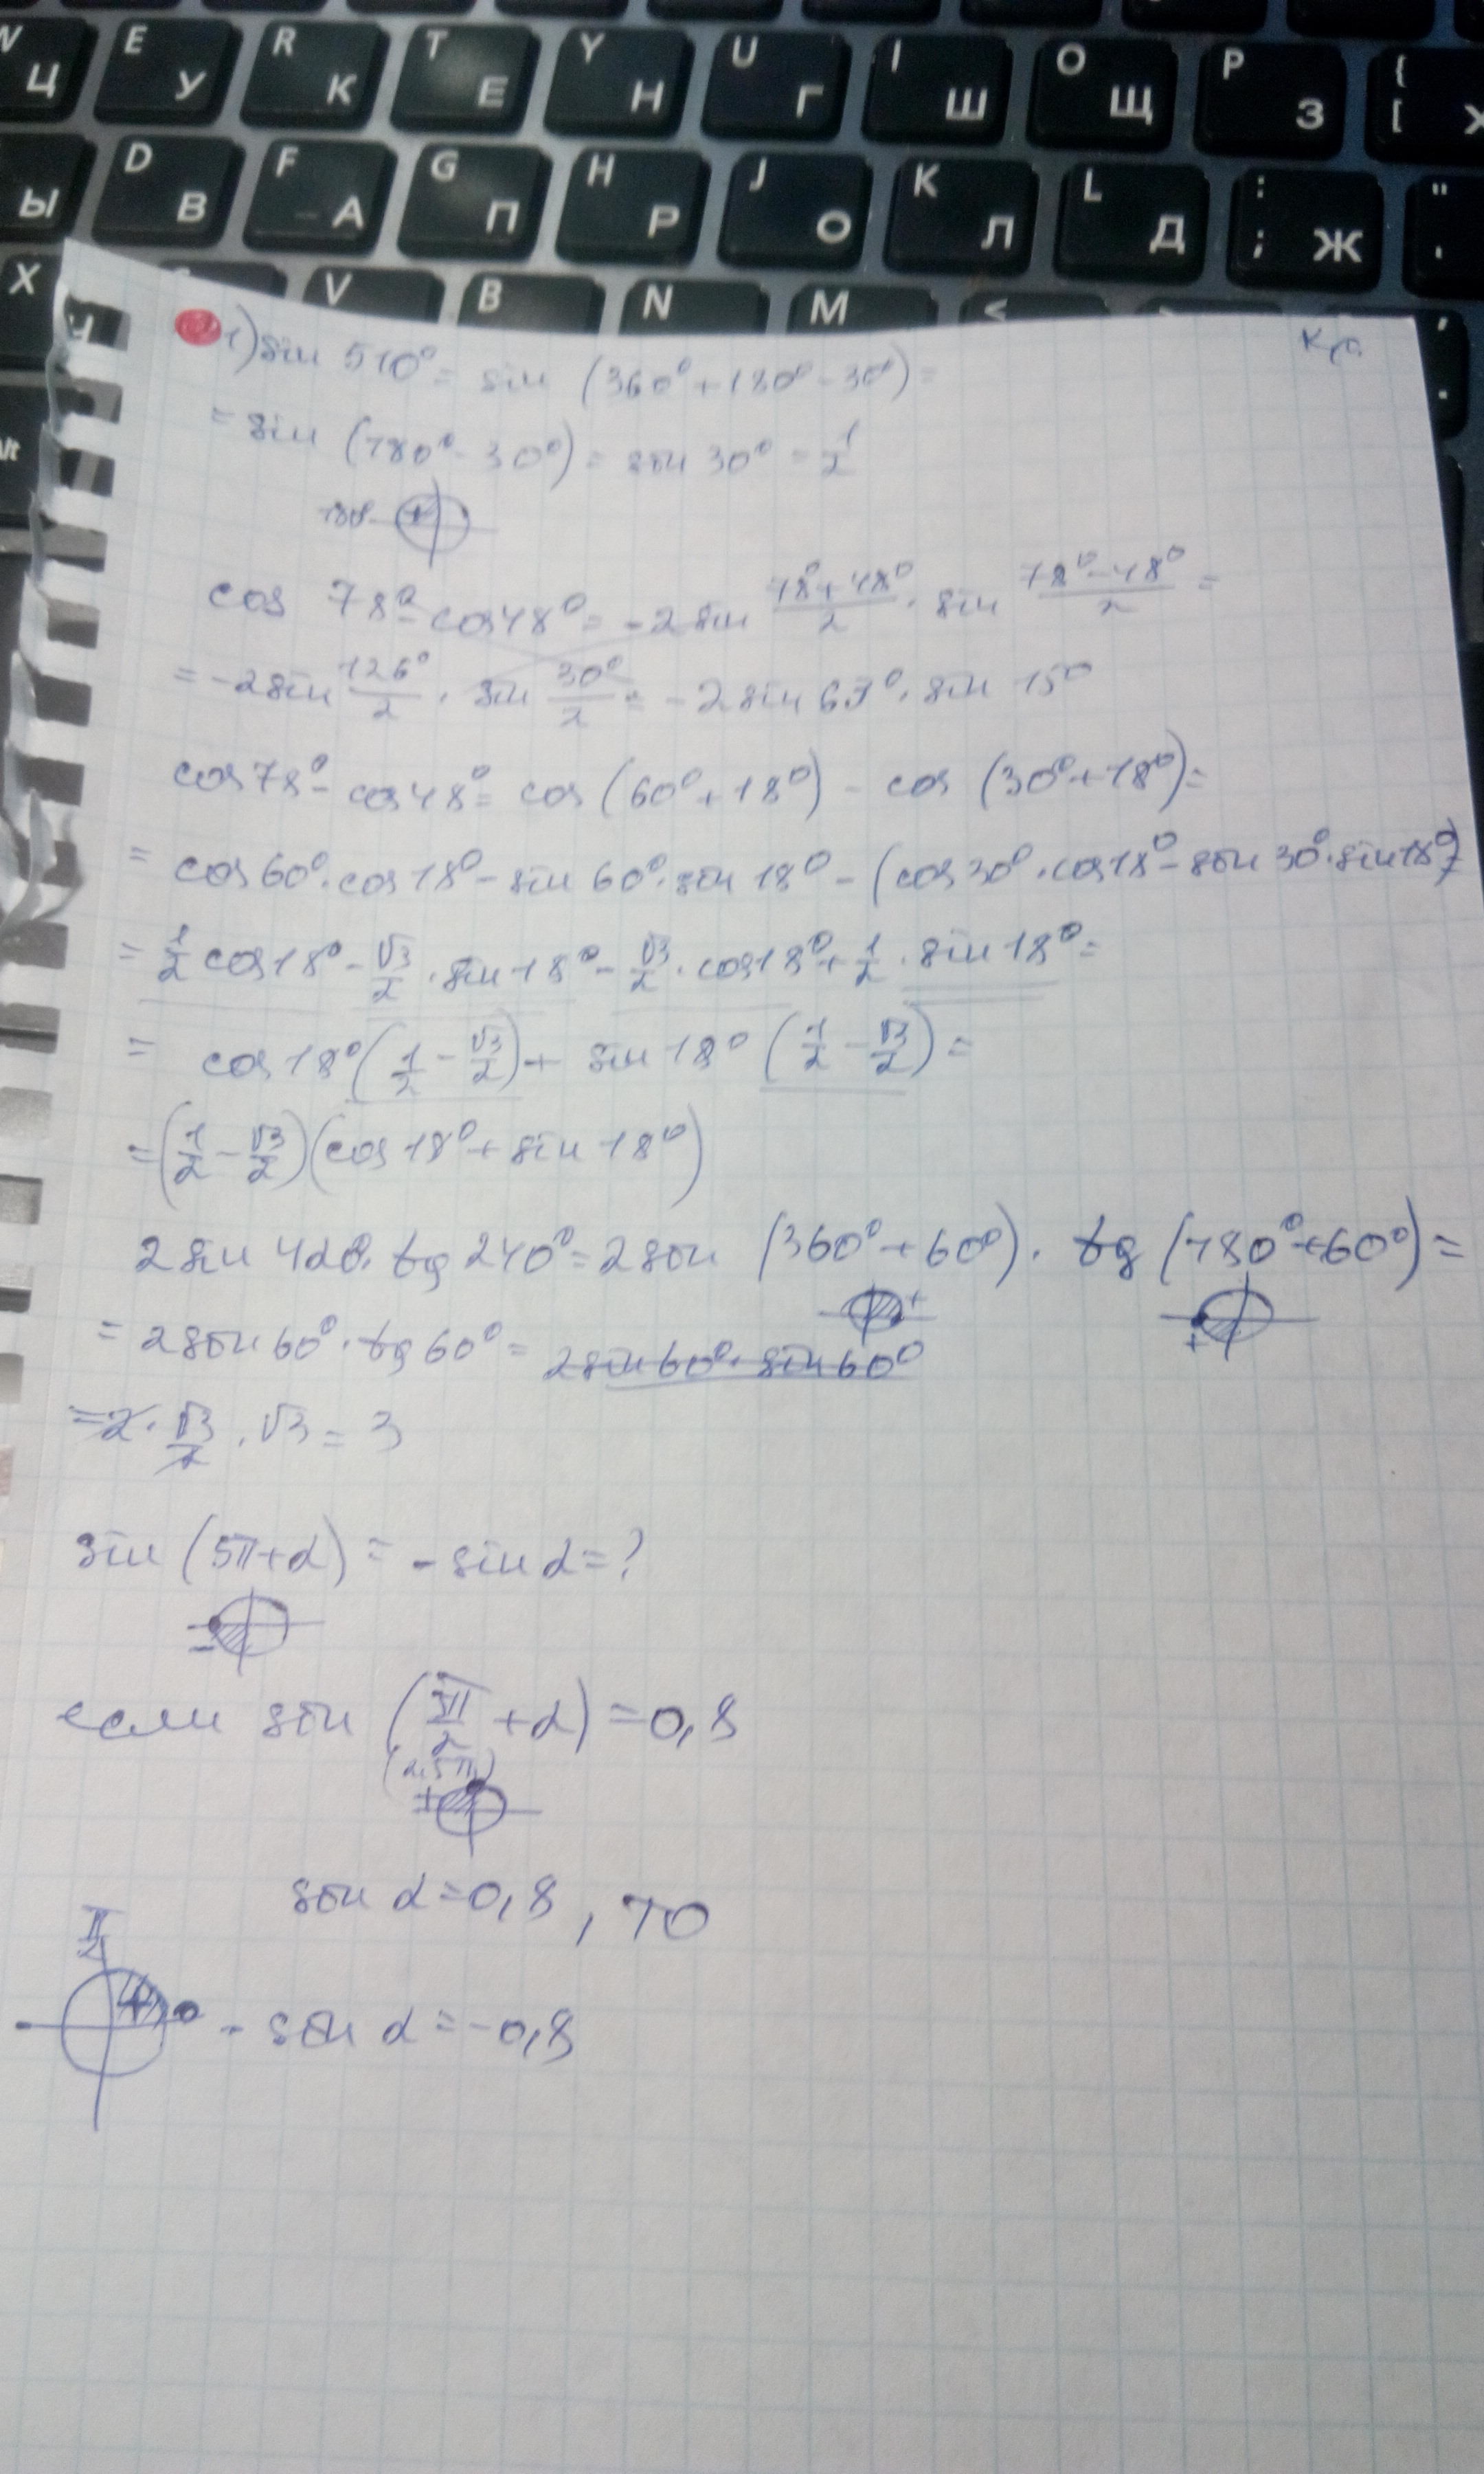 W Ц E У R К T Е Y Н U Г I Ш O Щ P З { [ Х
Ы D В F А G П H Р J О K Л L Д : ; Ж " '
X V B N M <
К/р
1) sin 510° = sin (360° + 180° - 30°) =
= sin (180° - 30°) = sin 30° = 1/2
180°
cos 78° - cos 48° = -2 sin (78° + 48°)/2 · sin (78° - 48°)/2 =
= -2 sin 126°/2 · sin 30°/2 = -2 sin 63° · sin 15°
cos 78° - cos 48° = cos (60° + 18°) - cos (30° + 18°) =
= cos 60° · cos 18° - sin 60° · sin 18° - (cos 30° · cos 18° - sin 30° · sin 18°) =
= 1/2 cos 18° - √3/2 · sin 18° - √3/2 · cos 18° + 1/2 · sin 18° =
= cos 18° (1/2 - √3/2) + sin 18° (1/2 - √3/2) =
= (1/2 - √3/2)(cos 18° + sin 18°)
2 sin 420° · tg 240° = 2 sin (360° + 60°) · tg (180° + 60°) =
+ +
= 2 sin 60° · tg 60° = 2 sin 60° · sin 60°
= 2 · √3/2 · √3 = 3
sin (5π + α) = - sin α = ?
-
если sin (5π/2 + α) = 0,8
(2,5π)
+
sin α = 0,8 , то
π/2
+ 0
- sin α = -0,8